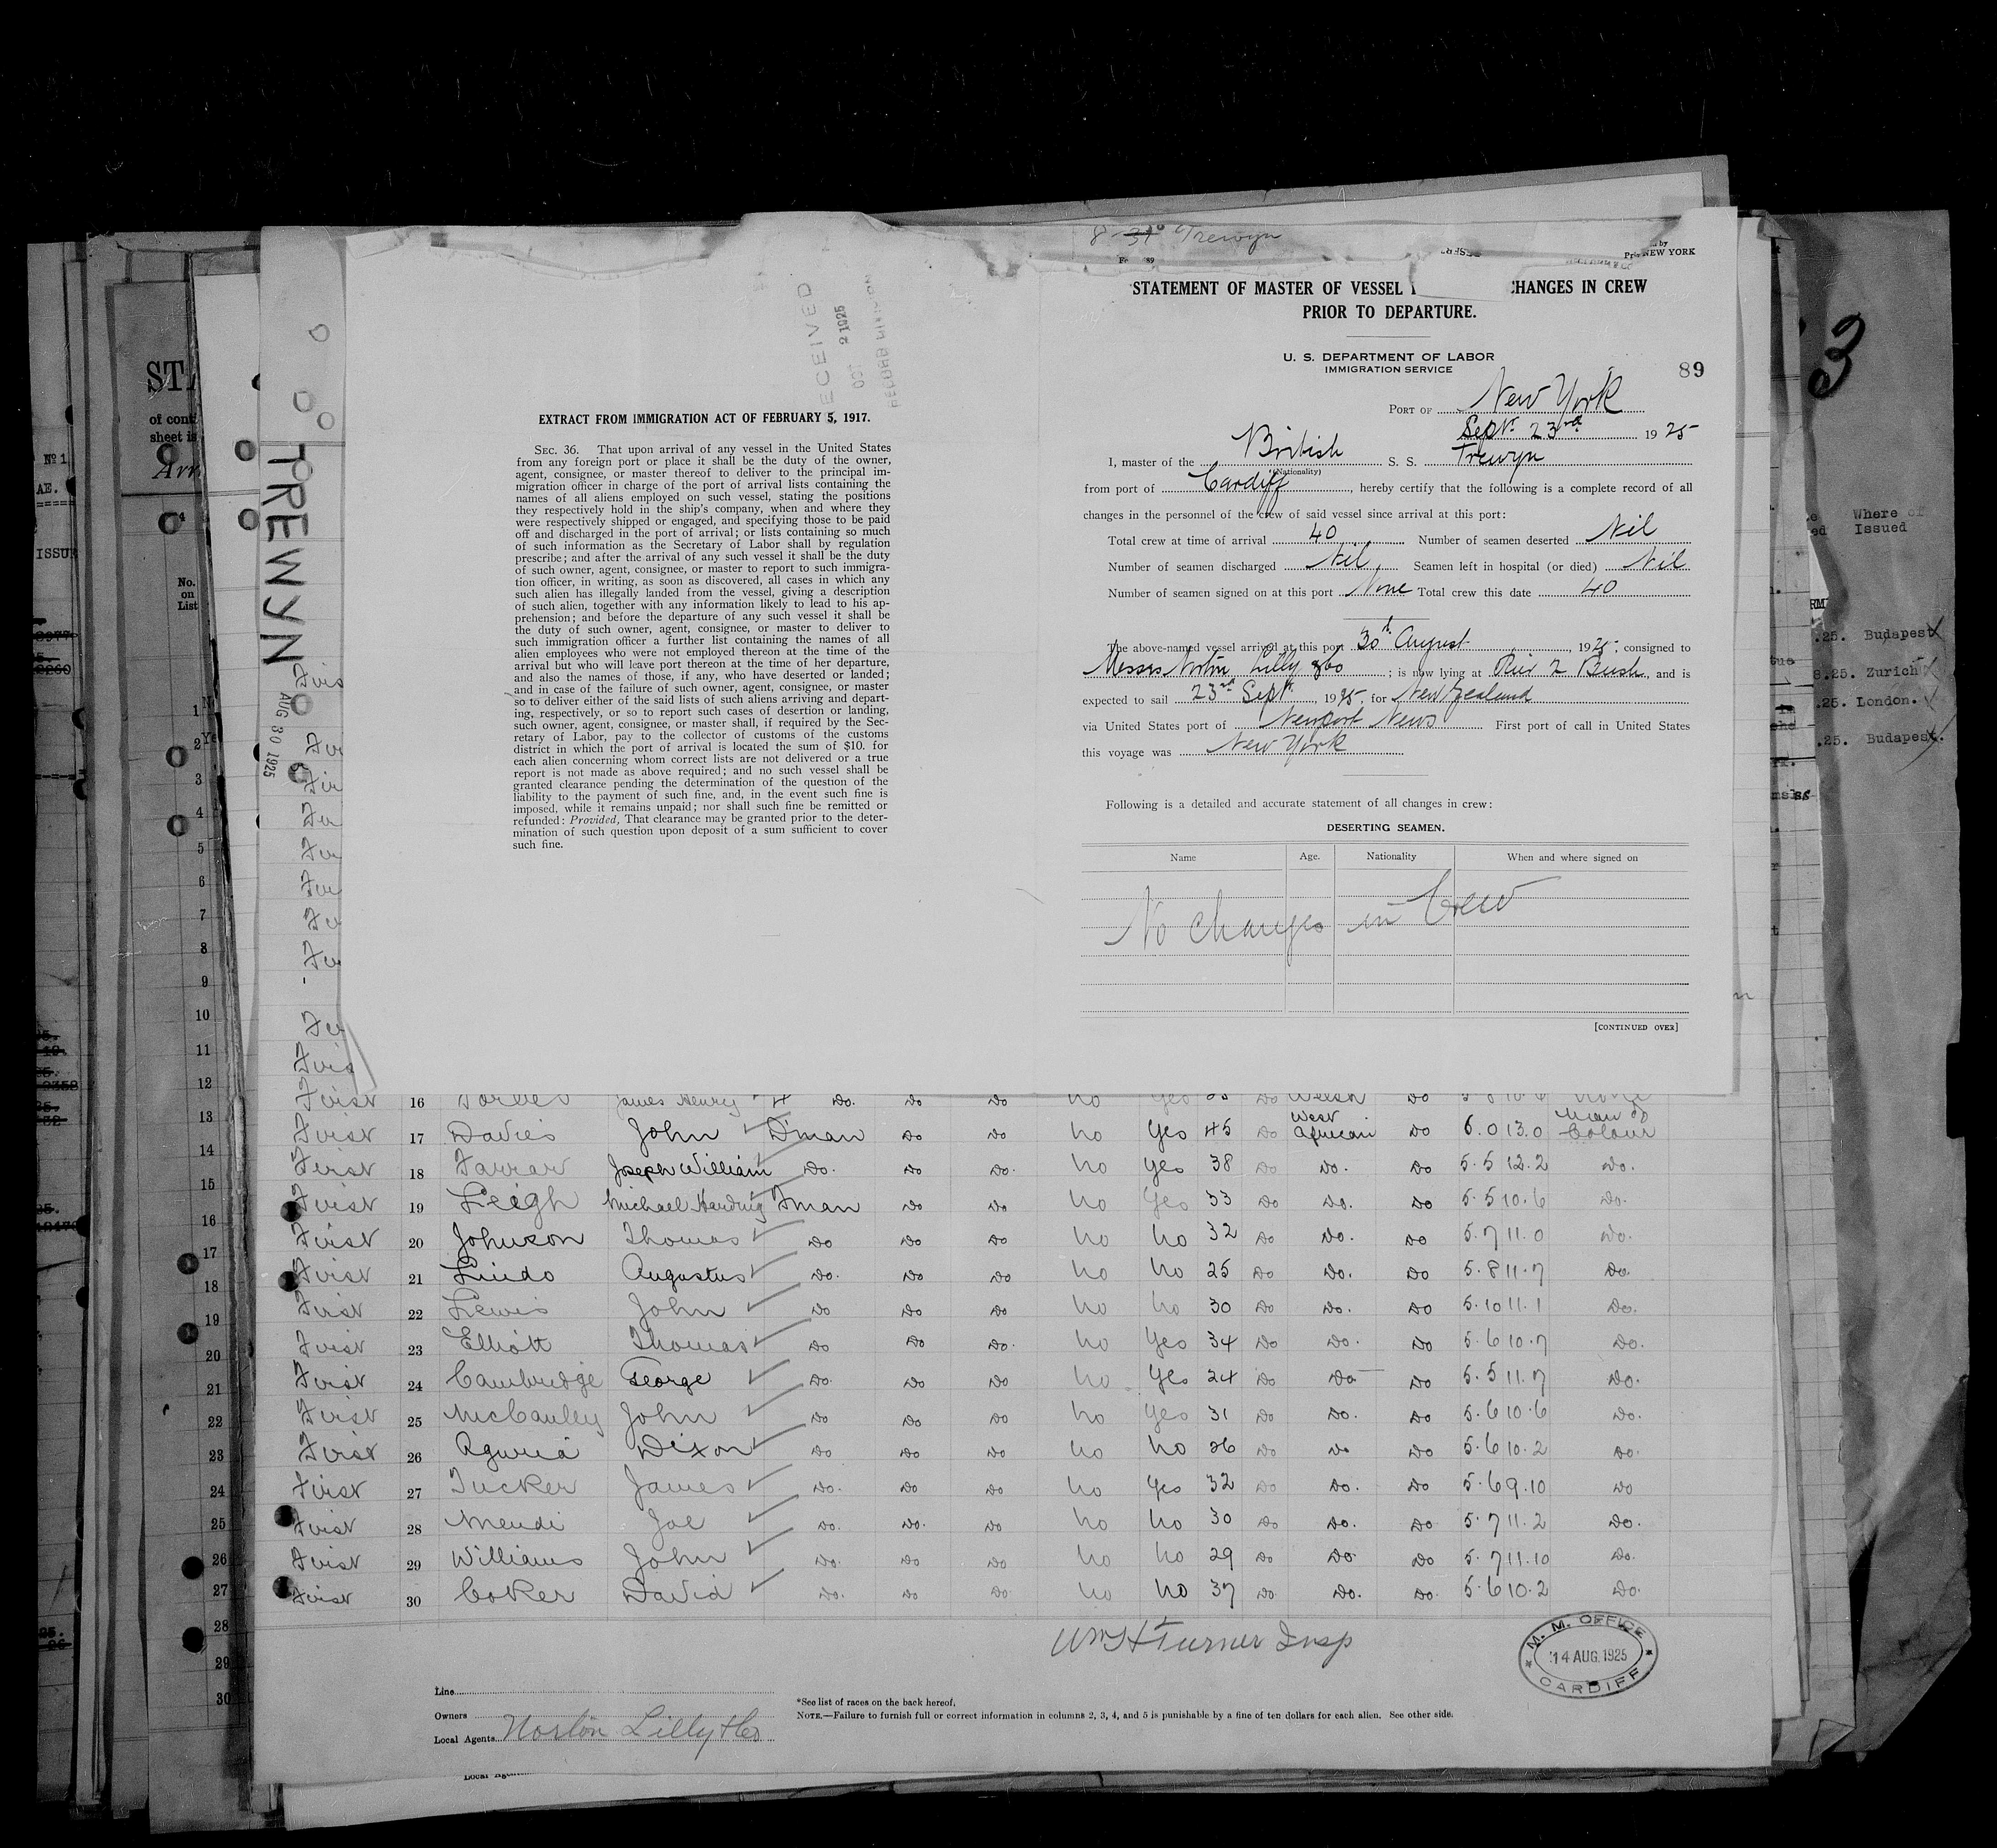 8-31º Trewyn
NEW YORK
STATEMENT OF MASTER OF VESSEL CHANGES IN CREW
PRIOR TO DEPARTURE.
U. S. DEPARTMENT OF LABOR
IMMIGRATION SERVICE
89
PORT OF New York
Septr 23rd 1925
I, master of the British S. S. Trewyn
(Nationality)
from port of Cardiff, hereby certify that the following is a complete record of all
changes in the personnel of the crew of said vessel since arrival at this port:
Total crew at time of arrival 40 Number of seamen deserted Nil
Number of seamen discharged Nil Seamen left in hospital (or died) Nil
Number of seamen signed on at this port None Total crew this date 40
The above-named vessel arrived at this port 30th August, 1925; consigned to
Messrs Norton Lilly & Co; is now lying at Pier 2 Bush, and is
expected to sail 23rd Septr, 1925, for New Zealand
via United States port of Newport News First port of call in United States
this voyage was New York
Following is a detailed and accurate statement of all changes in crew:
DESERTING SEAMEN.
Name Age. Nationality When and where signed on
No changes in Crew
[CONTINUED OVER]
ECEIVED
OCT 2 1925
EXTRACT FROM IMMIGRATION ACT OF FEBRUARY 5, 1917.
SEC. 36. That upon arrival of any vessel in the United States
from any foreign port or place it shall be the duty of the owner,
agent, consignee, or master thereof to deliver to the principal im-
migration officer in charge of the port of arrival lists containing the
names of all aliens employed on such vessel, stating the positions
they respectively hold in the ship's company, when and where they
were respectively shipped or engaged, and specifying those to be paid
off and discharged in the port of arrival; or lists containing so much
of such information as the Secretary of Labor shall by regulation
prescribe; and after the arrival of any such vessel it shall be the duty
of such owner, agent, consignee, or master to report to such immigra-
tion officer, in writing, as soon as discovered, all cases in which any
such alien has illegally landed from the vessel, giving a description
of such alien, together with any information likely to lead to his ap-
prehension; and before the departure of any such vessel it shall be
the duty of such owner, agent, consignee, or master to deliver to
such immigration officer a further list containing the names of all
alien employees who were not employed thereon at the time of the
arrival but who will leave port thereon at the time of her departure,
and also the names of those, if any, who have deserted or landed;
and in case of the failure of such owner, agent, consignee, or master
so to deliver either of the said lists of such aliens arriving and depart-
ing, respectively, or so to report such cases of desertion or landing,
such owner, agent, consignee, or master shall, if required by the Sec-
retary of Labor, pay to the collector of customs of the customs
district in which the port of arrival is located the sum of $10. for
each alien concerning whom correct lists are not delivered or a true
report is not made as above required; and no such vessel shall be
granted clearance pending the determination of the question of the
liability to the payment of such fine, and, in the event such fine is
imposed, while it remains unpaid; nor shall such fine be remitted or
refunded: Provided, That clearance may be granted prior to the deter-
mination of such question upon deposit of a sum sufficient to cover
such fine.
TREWYN
AUG 30 1925
No. on List
Where of
Issued
.25. Budapest
8.25. Zurich
.25. London.
.25. Budapest.
3
First 16 James Henry Do. Do Do no Yes Welsh Do
First 17 Davies John D'man Do Do no Yes 45 Do West African Do 6.0 13.0 Man of Colour
First 18 Farrar Joseph William Do. Do Do. no Yes 38 Do Do. Do 5.5 12.2 Do.
First 19 Leigh Michael Harding F'man Do Do no Yes 33 Do Do. Do 5.5 10.6 Do.
First 20 Johnson Thomas Do Do Do no no 32 Do Do. Do 5.7 11.0 Do.
First 21 Lindo Augustus Do. Do Do no no 25 Do Do. Do 5.8 11.7 Do.
First 22 Lewis John Do Do Do no no 30 Do Do. Do 5.10 11.1 Do.
First 23 Elliott Thomas Do Do Do. no Yes 34 Do Do. Do 5.6 10.7 Do.
First 24 Cambridge George Do. Do Do no Yes 24 Do Do Do 5.5 11.7 Do.
First 25 McCauley John Do Do Do no Yes 31 Do Do. Do 5.6 10.6 Do.
First 26 Dixon Do Do Do no no 26 Do Do Do 5.6 10.2 Do.
First 27 Tucker James Do. Do Do no Yes 32 Do Do. Do 5.6 9.10 Do
First 28 Mendi Joe Do. Do. Do no no 30 Do Do. Do 5.7 11.2 Do.
First 29 Williams John Do. Do Do no no 29 Do Do. Do 5.7 11.10 Do.
First 30 Coker David Do. Do Do. no no 37 Do Do. Do. 5.6 10.2 Do.
Wm H Turner Insp
M. M. OFFICE
14 AUG. 1925
CARDIFF
Line
Owners
Local Agents Norton Lilly & Co
*See list of races on the back hereof.
NOTE.—Failure to furnish full or correct information in columns 2, 3, 4, and 5 is punishable by a fine of ten dollars for each alien. See other side.